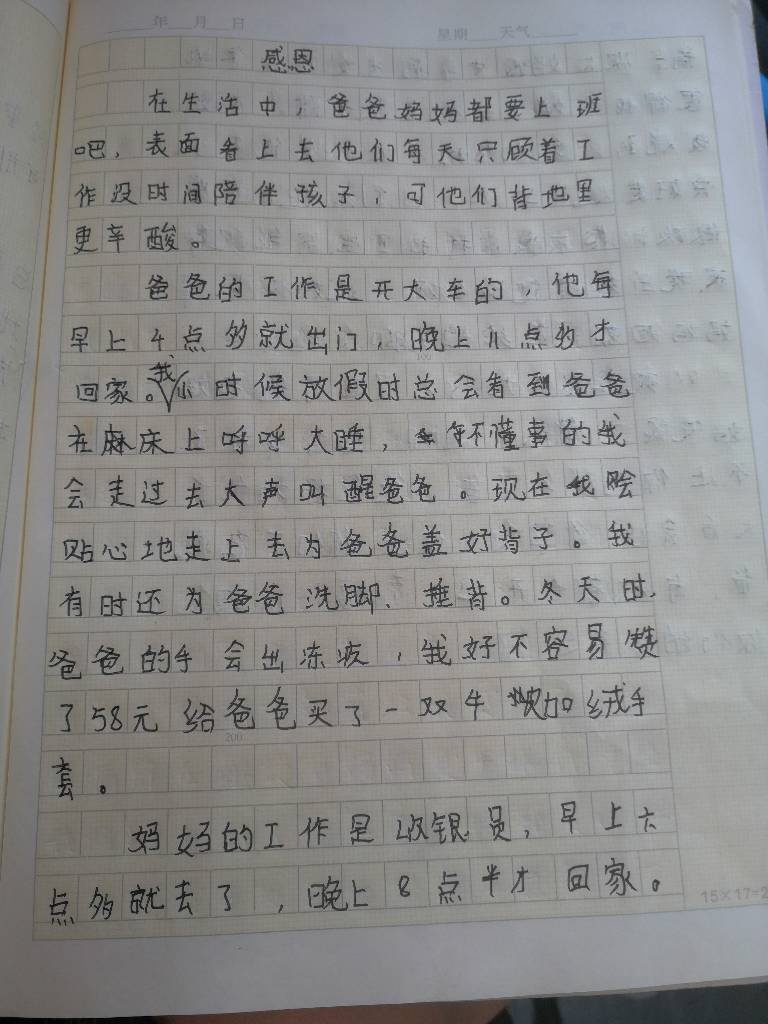 年 月 日
星期 天气
感恩
在生活中，爸爸妈妈都要上班
吧，表面看上去他们每天只顾着工
作没时间陪伴孩子，可他们背地里
更辛酸。
爸爸的工作是开大车的，他每
早上4点多就出门，晚上11点多才
回家。我小时候放假时总会看到爸爸
在床上呼呼大睡，不懂事的我
会走过去大声叫醒爸爸。现在我会
贴心地走上去为爸爸盖好背子。我
有时还为爸爸洗脚、捶背。冬天时，
爸爸的手会出冻疮，我好不容易攒
了58元给爸爸买了一双牛皮加绒手
套。
妈妈的工作是收银员，早上六
点多就去了，晚上8点半才回家。
100
200